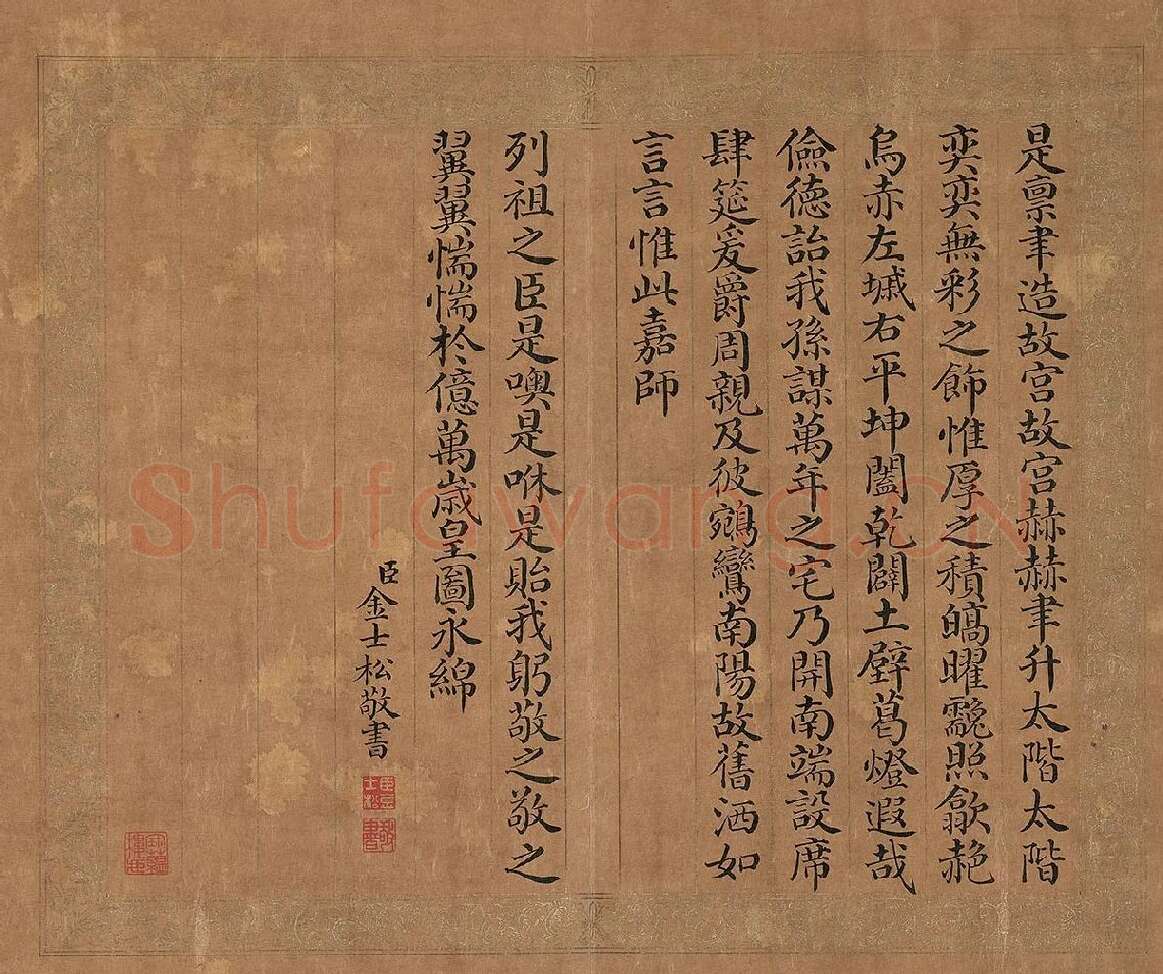 是禀聿造故宫故宫赫赫聿升太階太階
奕奕無彩之飾惟厚之積皜曜靉照歙赩
烏赤左墄右平坤闔乾闢土壁葛燈遐哉
儉德詒我孫謀萬年之宅乃開南端設席
肆筵爰爵周親及彼鵷鸞南陽故舊洒如
言言惟此嘉師
列祖之臣是噢是咻是貽我躬敬之敬之
翼翼惴惴於億萬歲皇圖永綿
臣金士松敬書
Shufawang.CN